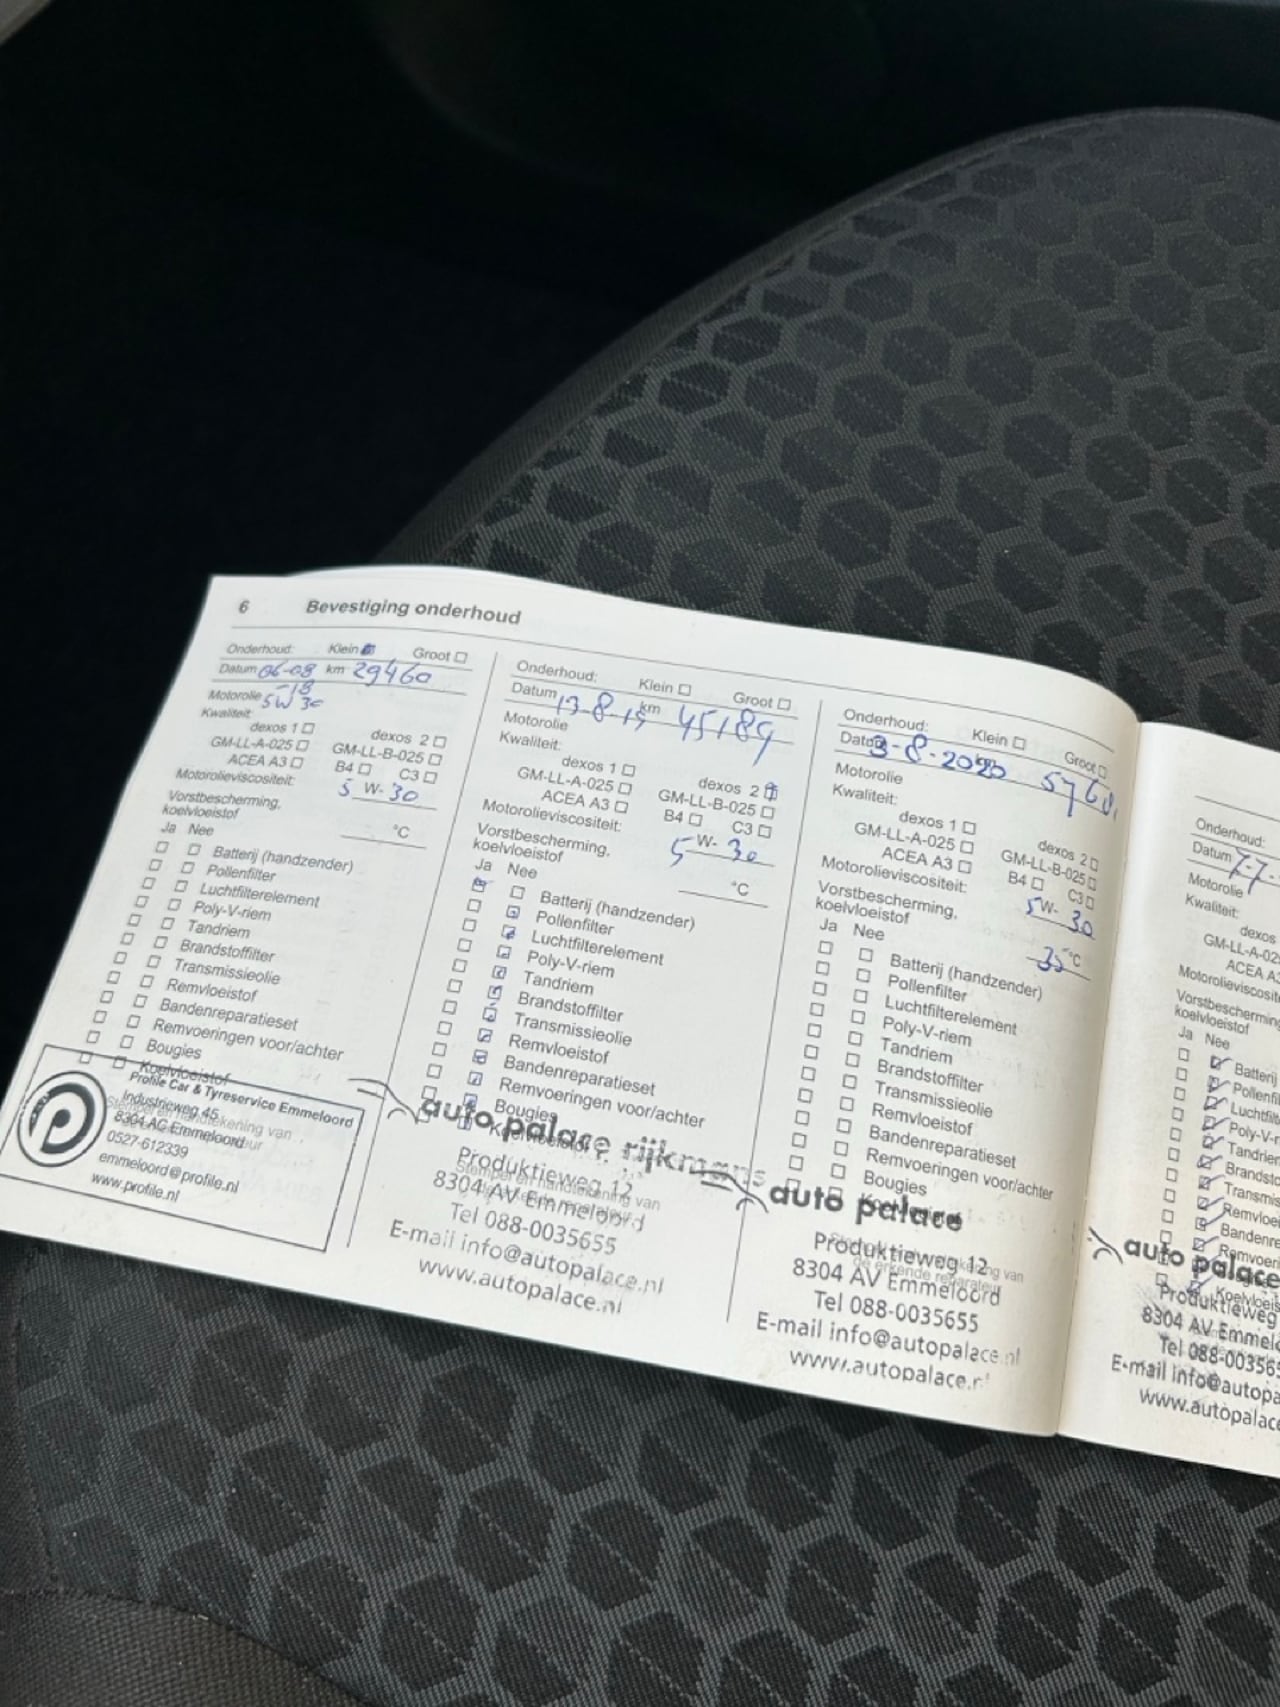 6 Bevestiging onderhoud
Onderhoud: Klein Groot
Datum 06-08 km 29460
-18
Motorolie 5W30
Kwaliteit:
dexos 1 dexos 2
GM-LL-A-025 GM-LL-B-025
ACEA A3 B4 C3
Motorolieviscositeit: 5 W- 30
Vorstbescherming,
koelvloeistof °C
Ja Nee
Batterij (handzender)
Pollenfilter
Luchtfilterelement
Poly-V-riem
Tandriem
Brandstoffilter
Transmissieolie
Remvloeistof
Bandenreparatieset
Remvoeringen voor/achter
Bougies
Koelvloeistof
Profile Car & Tyreservice Emmeloord
Industrieweg 45
8304 AC Emmeloord
0527-612339
emmeloord@profile.nl
www.profile.nl
Onderhoud: Klein Groot
Datum 13-8-19 km 45189
Motorolie
Kwaliteit:
dexos 1 dexos 2
GM-LL-A-025 GM-LL-B-025
ACEA A3 B4 C3
Motorolieviscositeit: 5 W- 30
Vorstbescherming,
koelvloeistof °C
Ja Nee
Batterij (handzender)
Pollenfilter
Luchtfilterelement
Poly-V-riem
Tandriem
Brandstoffilter
Transmissieolie
Remvloeistof
Bandenreparatieset
Remvoeringen voor/achter
Bougies
Koelvloeistof
auto palace rijkmans
Stempel en handtekening van
Produktieweg 12
8304 AV Emmeloord
Tel 088-0035655
E-mail info@autopalace.nl
www.autopalace.nl
Onderhoud: Klein Groot
Datum 3-8-2020
Motorolie
Kwaliteit:
dexos 1 dexos 2
GM-LL-A-025 GM-LL-B-025
ACEA A3 B4 C3
Motorolieviscositeit: 5 W- 30
Vorstbescherming,
koelvloeistof 35 °C
Ja Nee
Batterij (handzender)
Pollenfilter
Luchtfilterelement
Poly-V-riem
Tandriem
Brandstoffilter
Transmissieolie
Remvloeistof
Bandenreparatieset
Remvoeringen voor/achter
Bougies
auto palace
Produktieweg 12
de erkende reparateur
8304 AV Emmeloord
Tel 088-0035655
E-mail info@autopalace.nl
www.autopalace.nl
Onderhoud:
Datum 7-7-
Motorolie
Kwaliteit:
dexos
GM-LL-A-02
ACEA A
Motorolieviscosit
Vorstbescherming
koelvloeistof
Ja Nee
Batterij
Pollenfi
Luchtfilt
Poly-V-
Tandrien
Brandsto
Transmis
Remvloei
Bandenre
Remvoeri
Koelvloeis
auto palace
Produktieweg
8304 AV Emmelo
Tel 088-003565
E-mail info@autopa
www.autopalace